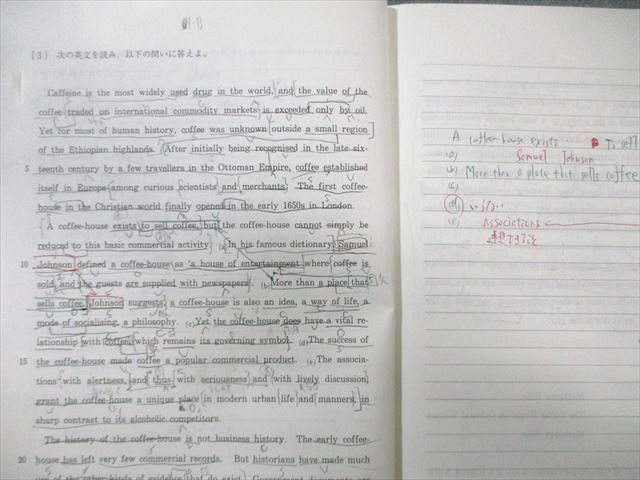 01-B
[3] 次の英文を読み、以下の問いに答えよ。
Caffeine is the most widely used drug in the world, and the value of the
coffee traded on international commodity markets is exceeded only by oil.
Yet for most of human history, coffee was unknown outside a small region
of the Ethiopian highlands. After initially being recognised in the late six-
5 teenth century by a few travellers in the Ottoman Empire, coffee established
itself in Europe among curious scientists and merchants. The first coffee-
house in the Christian world finally opened in the early 1650s in London.
A coffee-house exists to sell coffee, but the coffee-house cannot simply be
reduced to this basic commercial activity. (a)In his famous dictionary, Samuel
10 Johnson defined a coffee-house as 'a house of entertainment where coffee is
sold, and the guests are supplied with newspapers'. (b)More than a place that
sells coffee, Johnson suggests, a coffee-house is also an idea, a way of life, a
mode of socialising, a philosophy. (c)Yet the coffee-house does have a vital re-
lationship with coffee, which remains its governing symbol. (d)The success of
15 the coffee-house made coffee a popular commercial product. (e)The associa-
tions with alertness, and thus with seriousness and with lively discussion,
grant the coffee-house a unique place in modern urban life and manners, in
sharp contrast to its alcoholic competitors.
The history of the coffee-house is not business history. The early coffee-
20 house has left very few commercial records. But historians have made much
use of the other kinds of evidence that do exist. Government documents are
A coffee house exists To sell
(a) Samuel Johnson
(b) More than a place that sells coffee
(c)
(d)
(e) Associations
連想できること